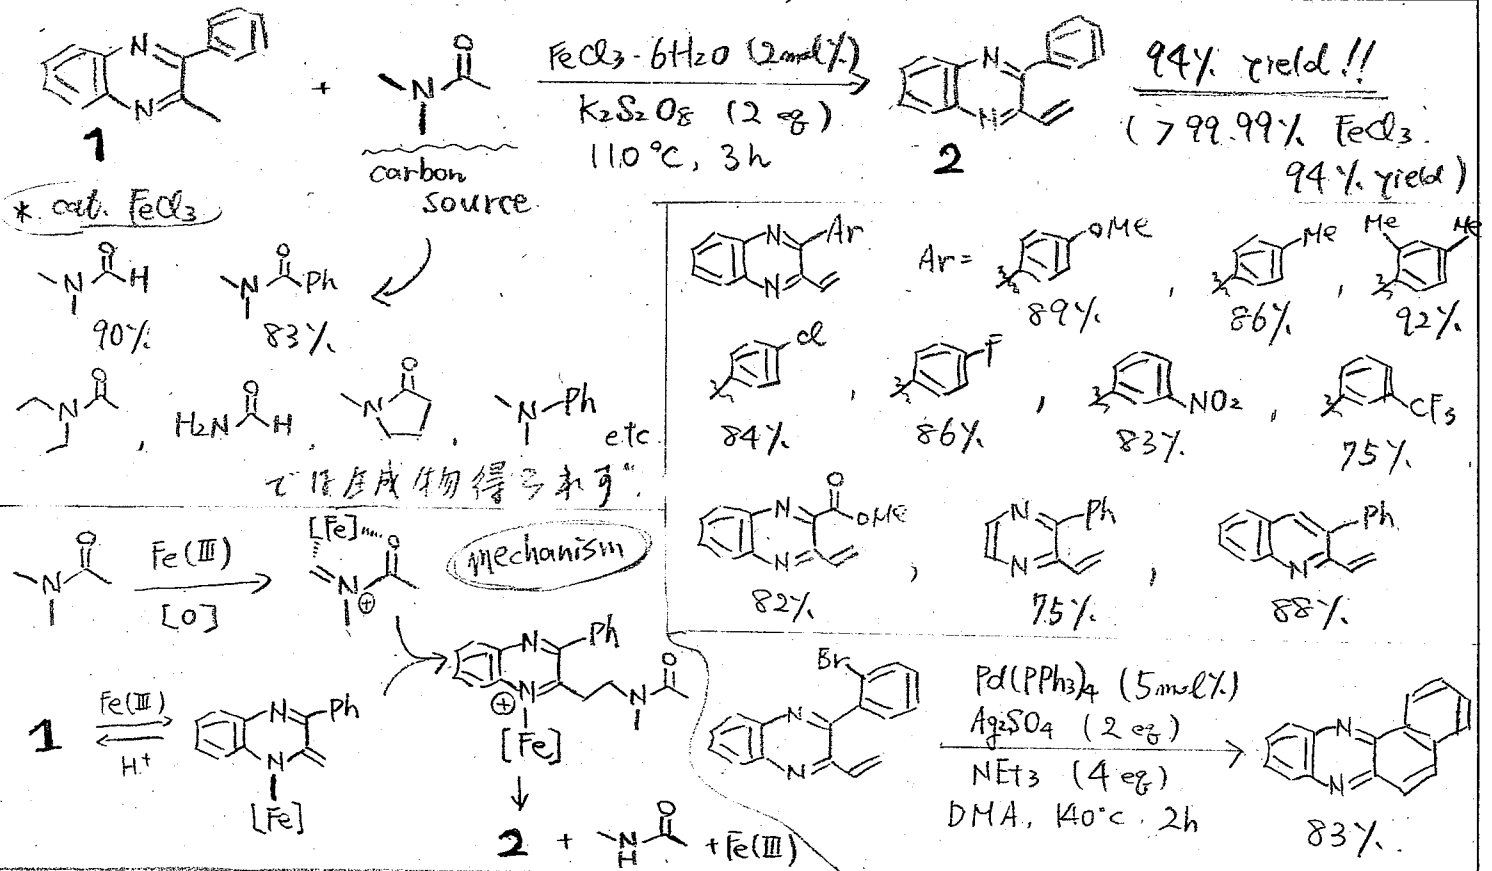 1
+
carbon
source
FeCl3・6H2O (2mol%)
K2S2O8 (2 eq)
110℃, 3h
2
94% yield!!
(>99.99% FeCl3.
94% yield)
* cat. FeCl3
90%
83%
H2N
etc.
では生成物得られず
Ar
Ar=
OMe
89%
Me
86%
Me Me
92%
Cl
84%
F
86%
NO2
83%
CF3
75%
OMe
82%
Ph
75%
Ph
88%
mechanism
Fe(Ⅲ)
[O]
[Fe]
1
Fe(Ⅲ)
H+
Ph
[Fe]
Ph
[Fe]
2 + + Fe(Ⅲ)
Br
Pd(PPh3)4 (5mol%)
Ag2SO4 (2 eq)
NEt3 (4 eq)
DMA, 140℃. 2h
83%